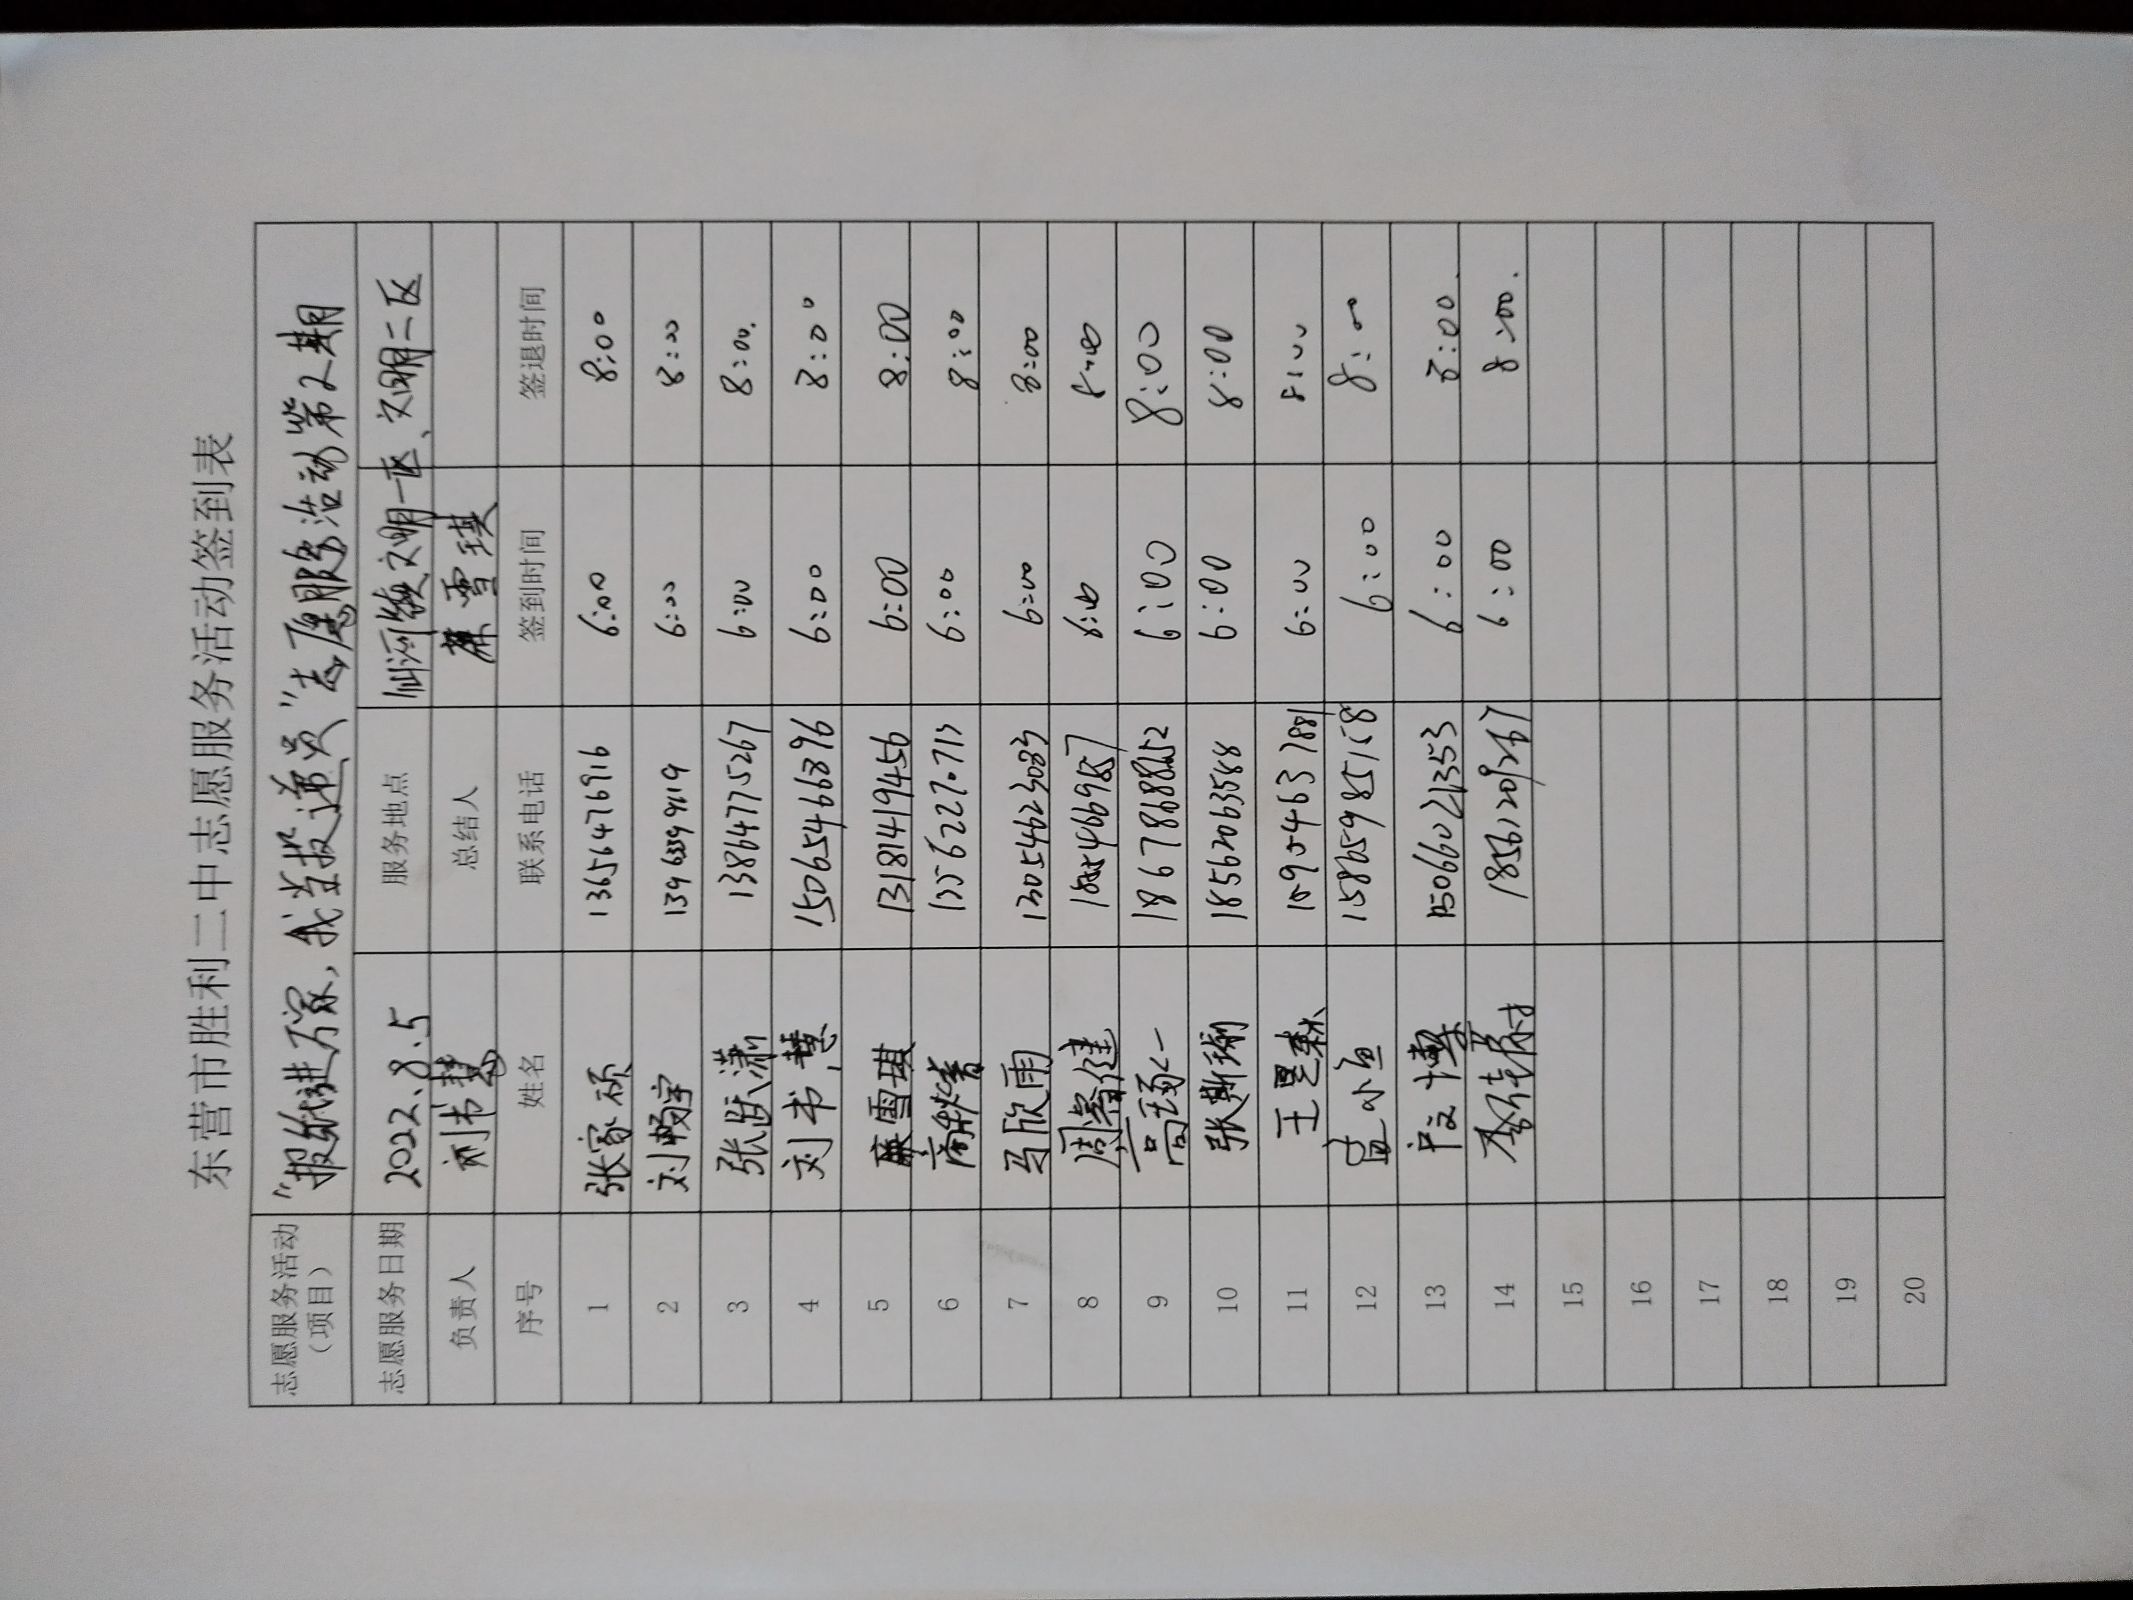 东营市胜利二中志愿服务活动签到表
志愿服务活动（项目） "报纸进万家，我当投递员"志愿服务活动第2期
志愿服务日期 2022.8.5 服务地点 仙河镇文明一区、文明二区
负责人 刘书慧 总结人 雪琪
序号 姓名 联系电话 签到时间 签退时间
1 张家硕 13656476916 6:00 8:00
2 刘畅宇 6:00 8:00
3 张跃潇 13864775267 6:00 8:00.
4 刘书慧 15065466896 6:00 8:00
5 雪琪 13181419456 6:00 8:00
6 6:00 8:00
7 马欣雨 13054623083 6:00 8:00
8 周 健 8:00
9 高 18678688152 6:00 8:00
10 张斯瑜 18562063588 6:00 8:00
11 王 森 15954637881 6:00 8:00
12 蓝小 15865985158 6:00 8:00
13 15066021353 6:00 8:00
14 18561209267 6:00 8:00.
15
16
17
18
19
20